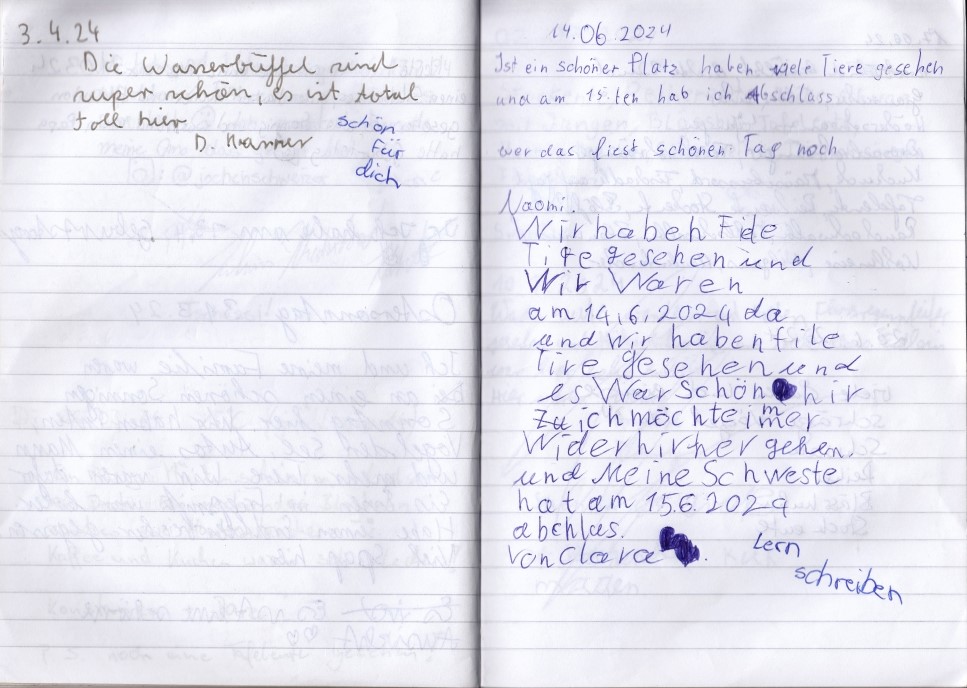 3.4.24
Die Wasserbüffel sind
super schön, es ist total
toll hier
D.
schön
für
dich
14.06.2024
Ist ein schöner Platz haben viele Tiere gesehen
und am 15.ten hab ich Abschlass
wer das liest schönen Tag noch
Naomi.
Wir haben File
Tire gesehen und
Wir Waren
am 14,6,2024 da
und wir haben file
Tire gesehen und
es War Schön hir
ich möchte immer
Wider hirher gehen.
und Meine Schweste
hat am 15.6.2024
abchlus.
Von Clara
Lern
schreiben